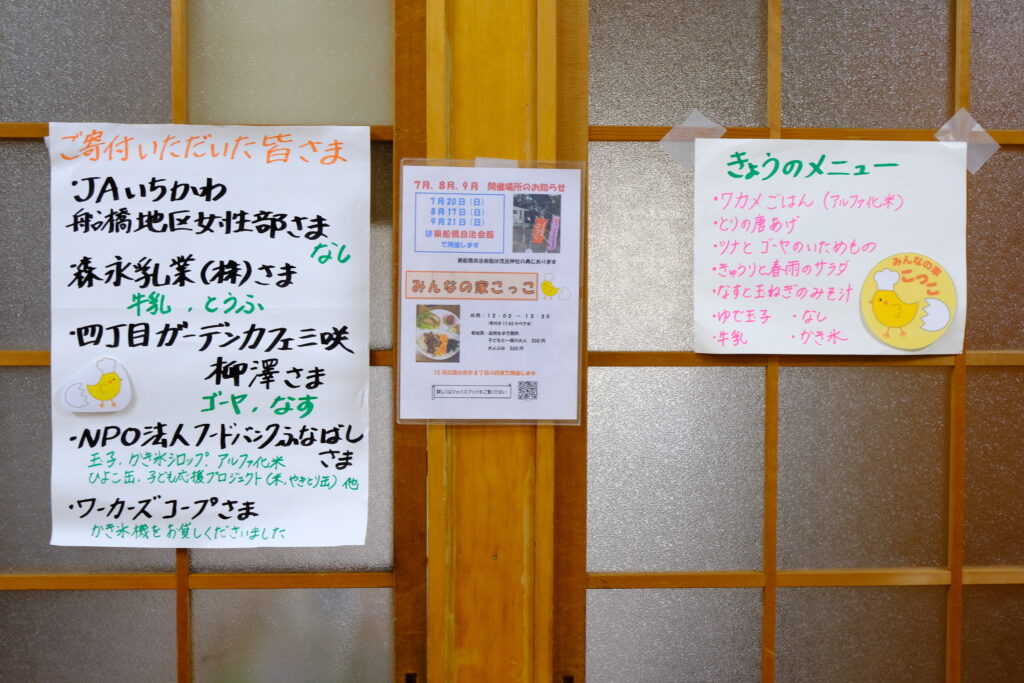 ご寄付いただいた皆さま
・JAいちかわ
船橋地区女性部さま
なし
・森永乳業(株)さま
牛乳、とうふ
・四丁目ガーデンカフェ三咲
柳澤さま
ゴーヤ、なす
・NPO法人フードバンクふなばし
さま
玉子、かき氷シロップ、アルファ化米
ひよこ缶、子ども応援プロジェクト(米、やきとり缶)他
・ワーカーズコープさま
かき氷機をお貸しくださいました
7月、8月、9月 開催場所のお知らせ
7月20日(日)
8月17日(日)
9月21日(日)
は東船橋自治会館
で開催します
東船橋自治会館は茂呂神社の奥にあります
みんなの家こっこ
時間:12:00~13:30
参加費:高校生まで無料
子どもと一緒の大人 300円
大人のみ 500円
詳しくはフェイスブックをご覧ください
きょうのメニュー
・ワカメごはん(アルファ化米)
・とりの唐あげ
・ツナとゴーヤのいためもの
・きゅうりと春雨のサラダ
・なすと玉ねぎのみそ汁
・ゆで玉子 ・なし
・牛乳 ・かき氷
みんなの家
こっこ